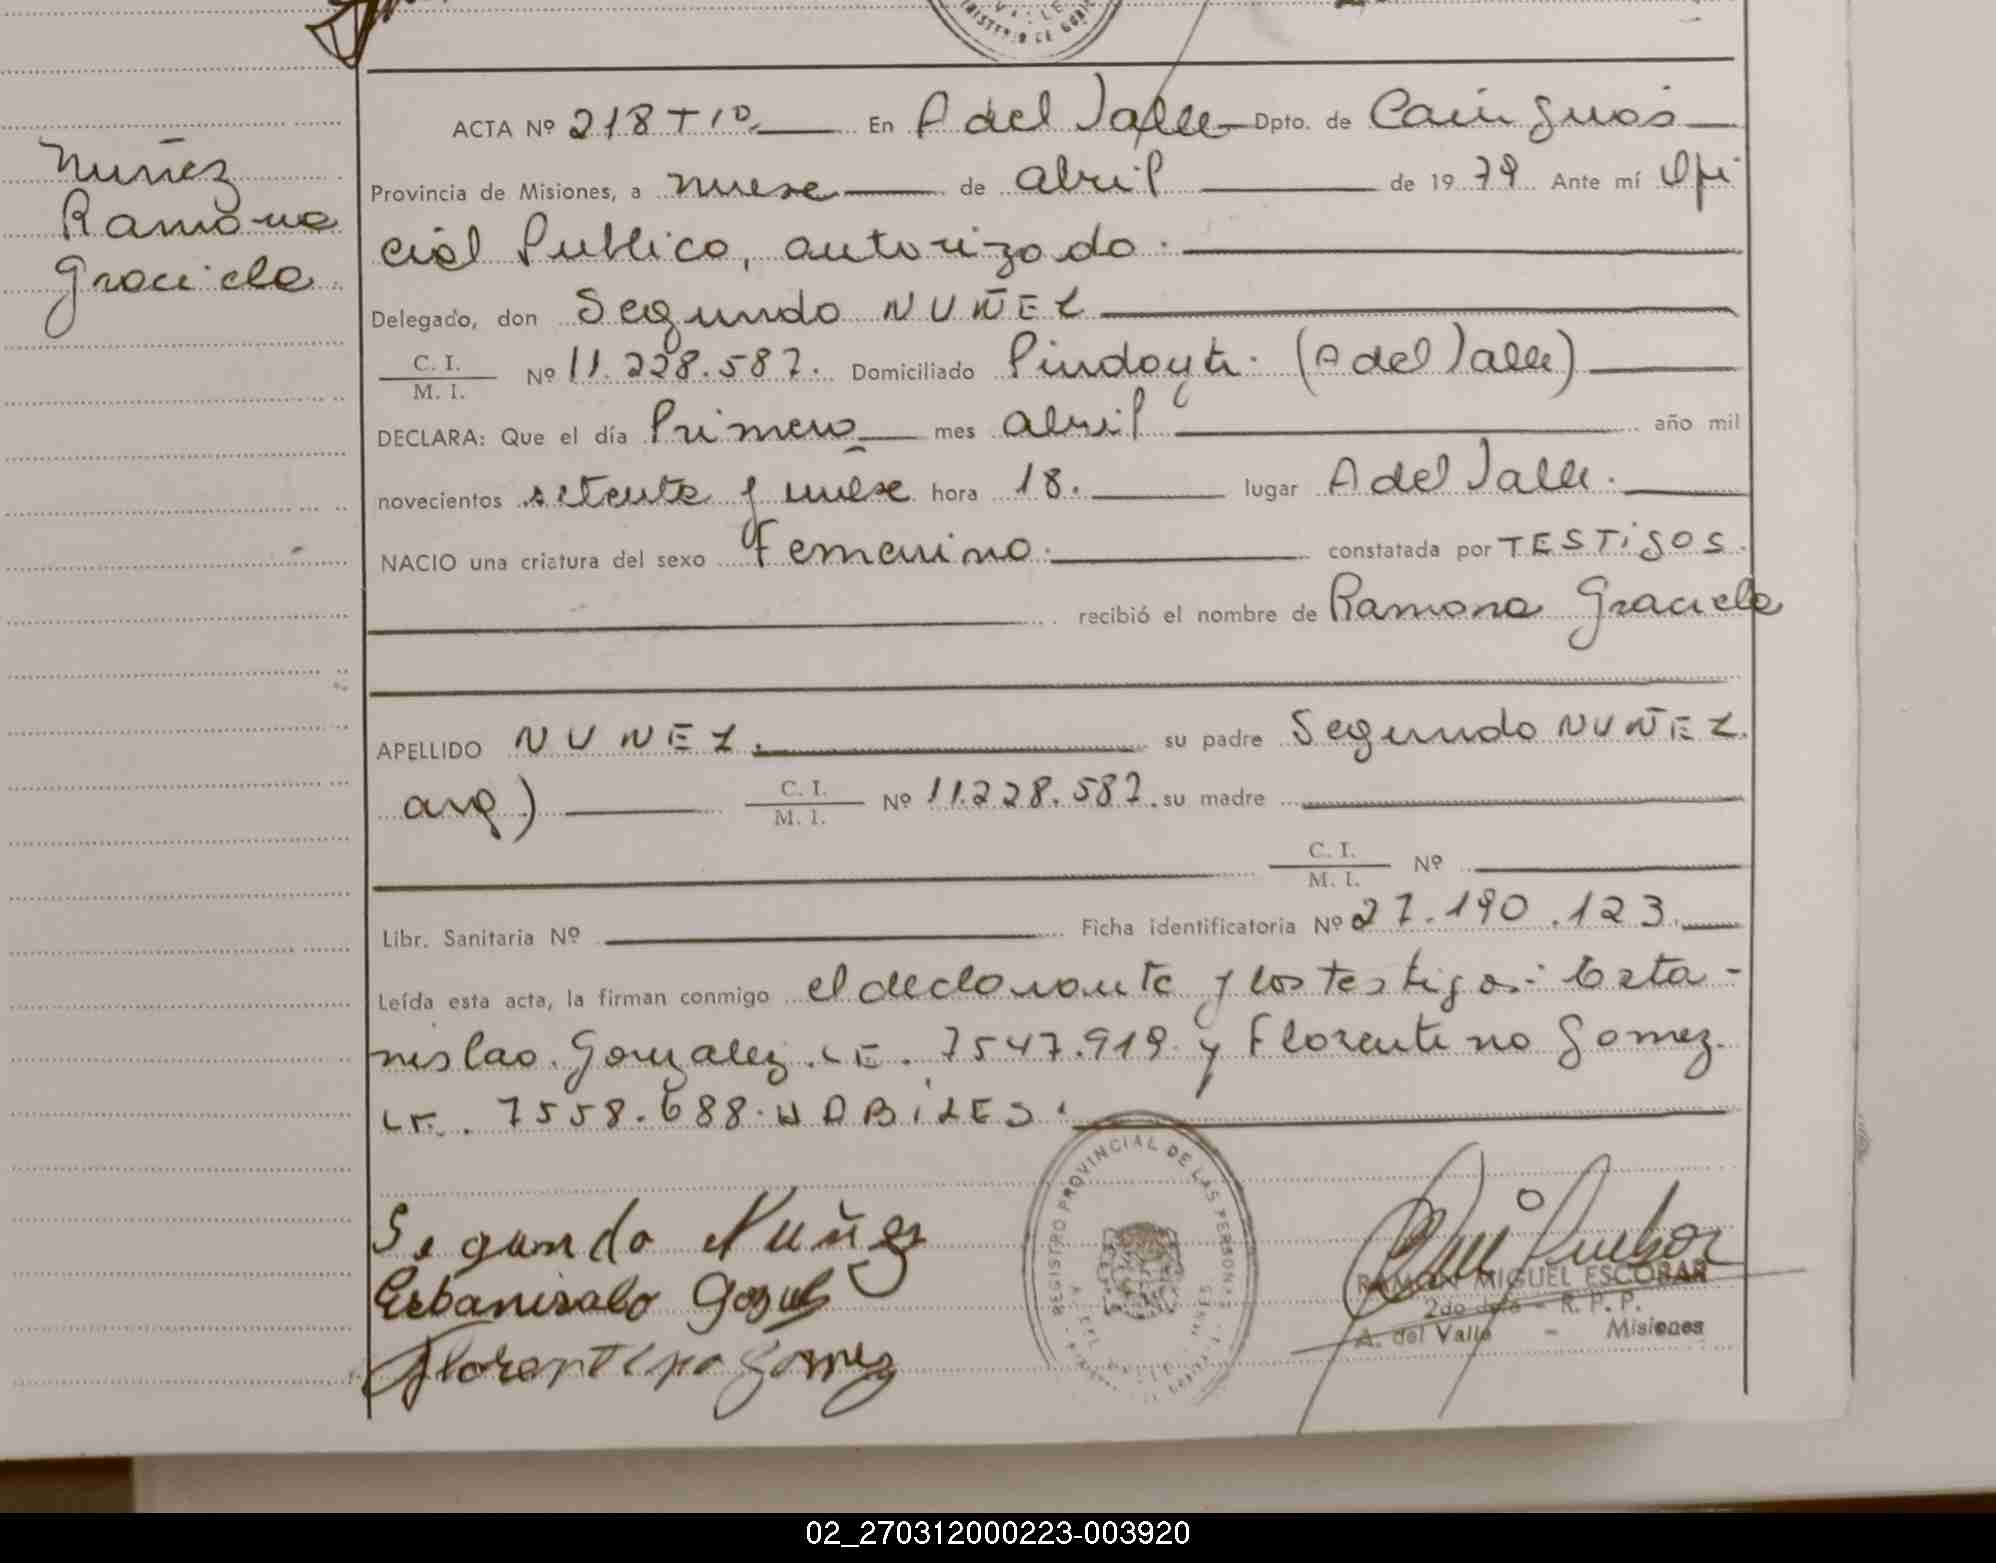 Nuñez
Ramona
Graciela
ACTA Nº 218 T 1º. En A del Valle Dpto. de Cainguás
Provincia de Misiones, a nueve de abril de 1979 Ante mí Ofi
cial Publico, autorizado.
Delegado, don Segundo NUÑEZ
C. I.
M. I. Nº 11.228.587. Domiciliado Pindoyti. (A del Valle)
DECLARA: Que el día Primero mes abril año mil
novecientos setenta y nueve hora 18. lugar A del Valle.
NACIO una criatura del sexo Femenino. constatada por TESTiGOS.
recibió el nombre de Ramona Graciela
APELLIDO NUÑEZ. su padre Segundo NUÑEZ.
arg) C. I.
M. I. Nº 11.228.587. su madre
C. I.
M. I. Nº
Libr. Sanitaria Nº Ficha identificatoria Nº 27.190.123.
Leída esta acta, la firman conmigo el declarante y los testigos: Esta-
nislao. Gonzalez. LE. 7547.919 y Florentino Gomez.
LE. 7558.688. HABiLES.
Segundo Nuñez
Florentino Gomez
REGISTRO PROVINCIAL DE LAS PERSONAS
RAMON MIGUEL ESCOBAR
2do - R. P. P.
A. del Valle - Misiones
02_270312000223-003920